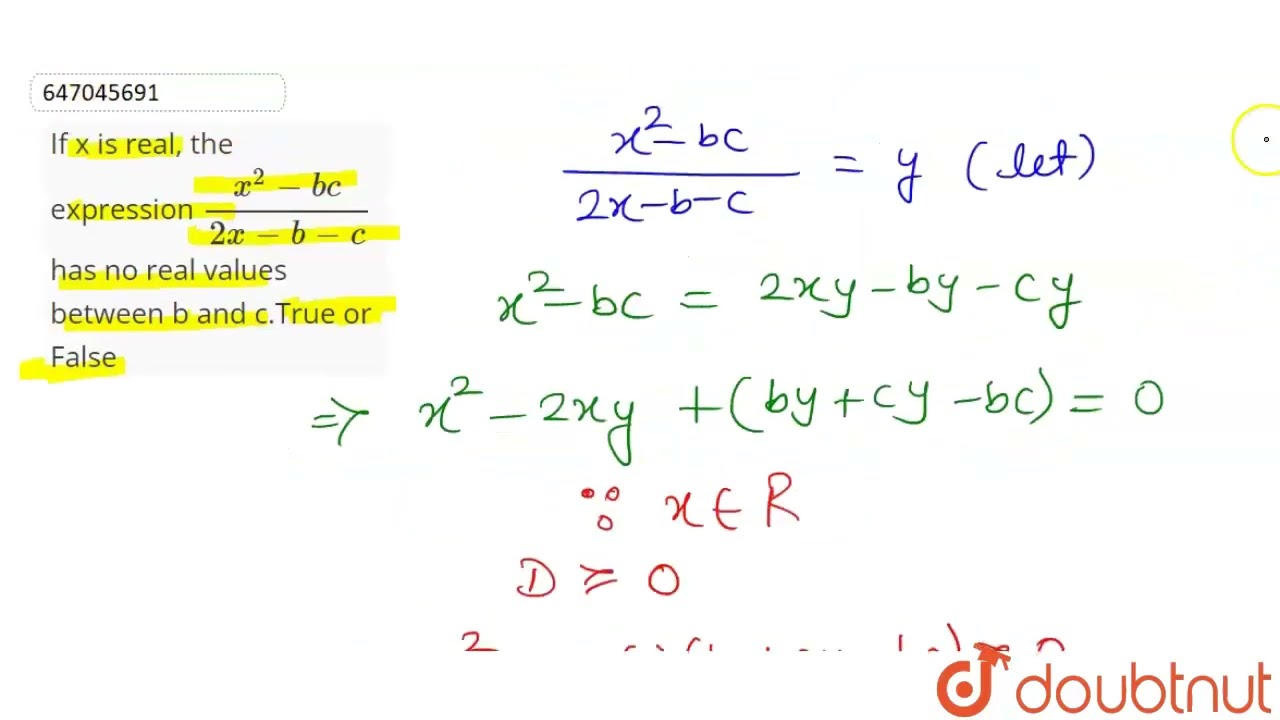 647045691
If x is real, the
expression \frac{x^2 - bc}{2x - b - c}
has no real values
between b and c.True or
False
\frac{x^2 - bc}{2x - b - c} = y (let)
x^2 - bc = 2xy - by - cy
⇒ x^2 - 2xy + (by + cy - bc) = 0
∵ x ∈ R
D ≥ 0
doubtnut